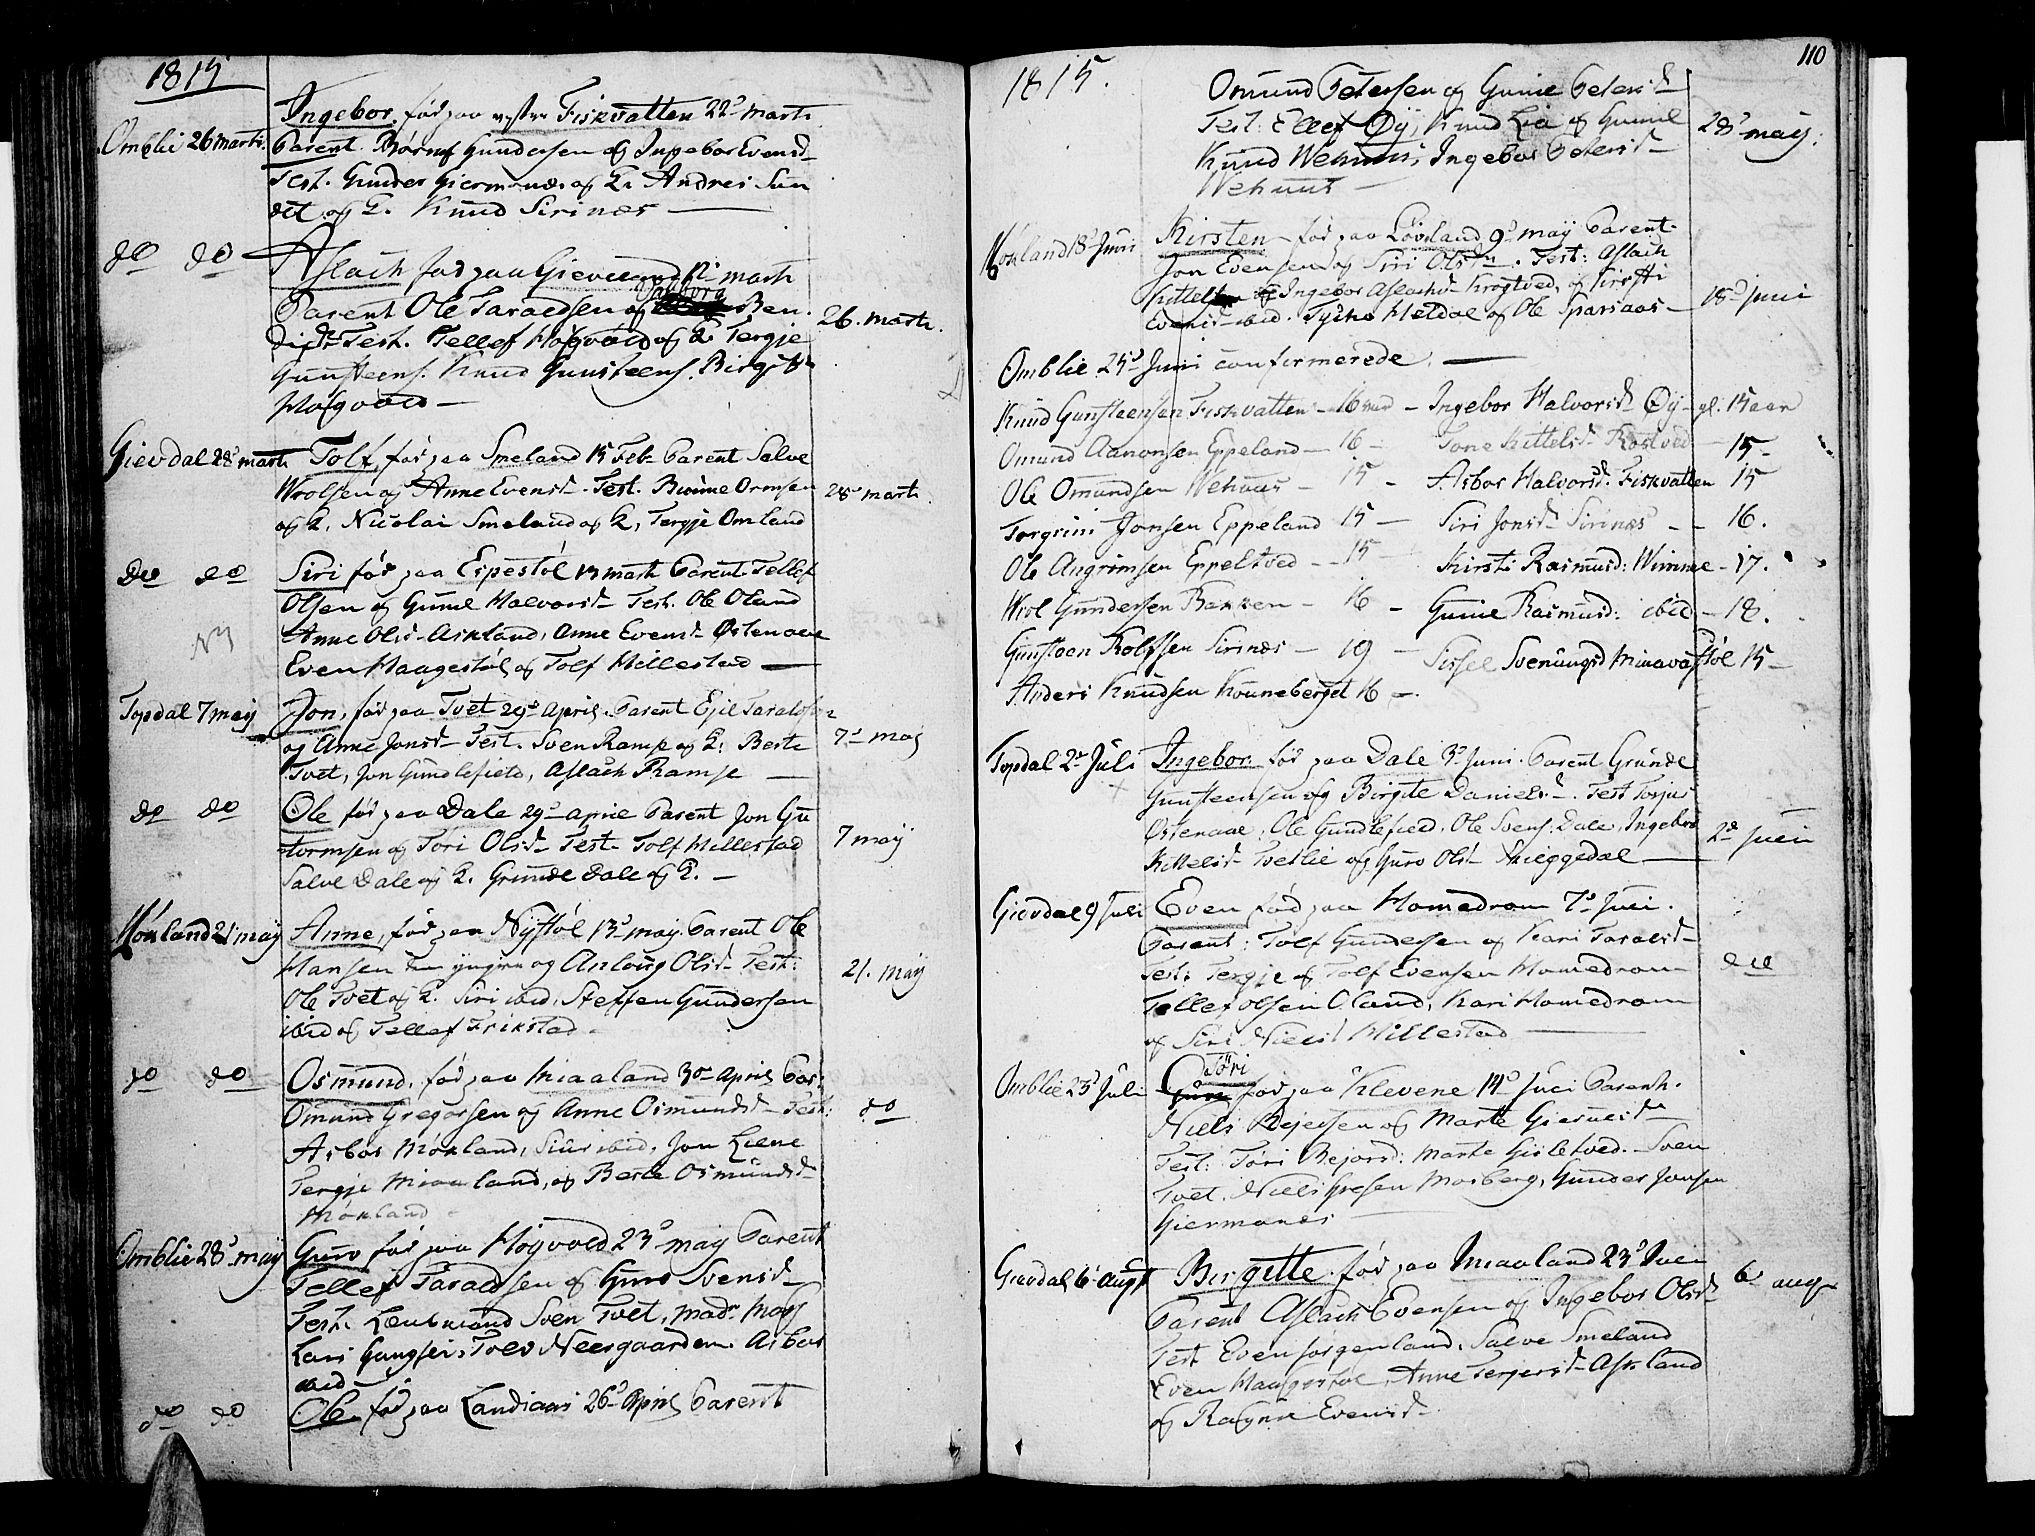 1815
Ingebor, fød paa vestre Fiskvatten 22d marti
Omblie 26 marti. Parent Børuf Gundersen og Ingebor Evensd
Test. Gunder Giermonæs og K. Andrei Sun
det og K. Knud Sirinæs
do do Aslach fød paa 12 marti
Parent Ole Taraldsen og Valborg Ben
digtd Test. Tellef Høgvold og K. Tergje 26. marti.
Gunsteens. Knud Gunsteens. Birgitte
Høgvold
Gievdal 28d marti Tolf, fød paa Smeland 15 Feb. Parent Salve
Wrolsen og Anne Evensd. Test. Ormsen 28 marti.
og K. Nicolai Smeland og K, Tergje Omland
Do do Siri fød paa Espestøl 13 marti Parent Tellef
Olsen og Gunil Halvorsd Test. Ole Oland
Anne Olsd Askland, Anne Evensd Østenaae
Even Haagestøl og Tolf Hillestad
Topdal 7 may Jon, fød paa Tvet 29d April. Parent Ejel Taraldsen
og Anne Jonsd Test. Sven Ramse og K: Berte 7d may
Tvet, Jon Gundlefield, Aslach Ramse
do do Ole fød paa Dale 29d april Parent Jon Gu
tormsen og Tori Olsd Test. Tolf Hillestad 7 may
Salve Dale og K. Grunde Dale og K.
Mökland 21 may Anne, fød paa Nystøl 13d may. Parent Ole
Hansen den yngre og Anlaug Olsd Test: 21. may
Ole Tvet og K. Siri ibid, Steffen Gundersen
ibid og Tellef Frikstad
do do Osmund, fød paa Miaaland 30 April Par.
Omund Gregorsen og Anne Osmundsd Test: do
Asbor Mökland, Siur ibid, Jon Liene
Tergje Miaaland, og Berte Osmundsd
Mökland
Omblie 28d may Guro fød paa Høgvold 23d may Parent
Tellef Taraldsen og Guro Svensd
Test. Leutnand Sven Tvet, madm
Lars Gangsei, Tolv Neergaarden Asbor
ibid
do do Ole fød paa Landiaas 26d April Parent
110
1815.
Omund Petersen og Gunil Petersd
Test: Ellef Øÿ, Knud Lia og Gunil 28d may.
Knud Wehuus, Ingebor Petersd
Wehuus
Mökland 18d Juni Kirsten fød paa Løvland 9d may Parent
Jon Evensen og Siri Olsd. Test: Aslach
og Ingebor Aslachsd Krostved, og Kirsti 18d juni
Evensd ibid. Tycho Heldal og Ole Sparsaas
Omblie 25d Juni confermerede
Knud Gunsteensen Fiskvatten 16 aar Ingebor Halvorsd Øÿ gl. 15 aar
Omund Aanonsen Eppeland 16 Tone Kittelsd Rostved 15
Ole Omundsen Wehuus 15 Asbor Halvorsd. Fiskvatten 15
Torgrim Jonsen Eppeland 15 Siri Jonsd Sirinæs 16.
Ole Angrimsen Eppeltved 15 Kirsti Rasmusd: Wimme 17.
Wrol Gundersen Bakken 16 Gunil Rasmusd: ibid 18.
Gunsteen Rolfsen Sirinæs 19 Sissel Svenungsd Minavastøl 15
Anders Knudsen Kouneberget 16
Topdal 2d Juli Ingebor fød paa Dale 3d Juni. Parent Grunde
Gunsteensen og Birgite Danielsd. Test Torjus
Ostenaae, Ole Gundlefield, Ole Svens: Dale, Ingebor 2d Juli
Kittelsd Tveitlie og Guro Olsd Skieggedal
Gievdal 9 Juli Even fød paa Homedrom 7d Juli.
Parent: Tolf Gundersen og Kari Taralsd
Test: Tergje og Tolf Evensen Homedrom do
Tellef Olsen Oland, Kari Homedrom
og Siri Nielsd Hillestad
Omblie 23d Juli Tøri fød paa Klevene 14d Juli Parent.
Niels Rejersen og Marte Giermsd
Test: Tøri Rejersd: Marte Gisletved. Sven
Tvet, Niels Gresen Mosberg, Gunder Jonsen
Giermonæs
Gievdal 6 Augst Birgitte fød paa Miaaland 23d Juli 6 aug
Parent Aslach Evensen og Ingebor Olsd
Test Even Jørgenland, Salve Smeland
Even Haagestøl, Anne Terjersd Askland
og Ragne Evensd